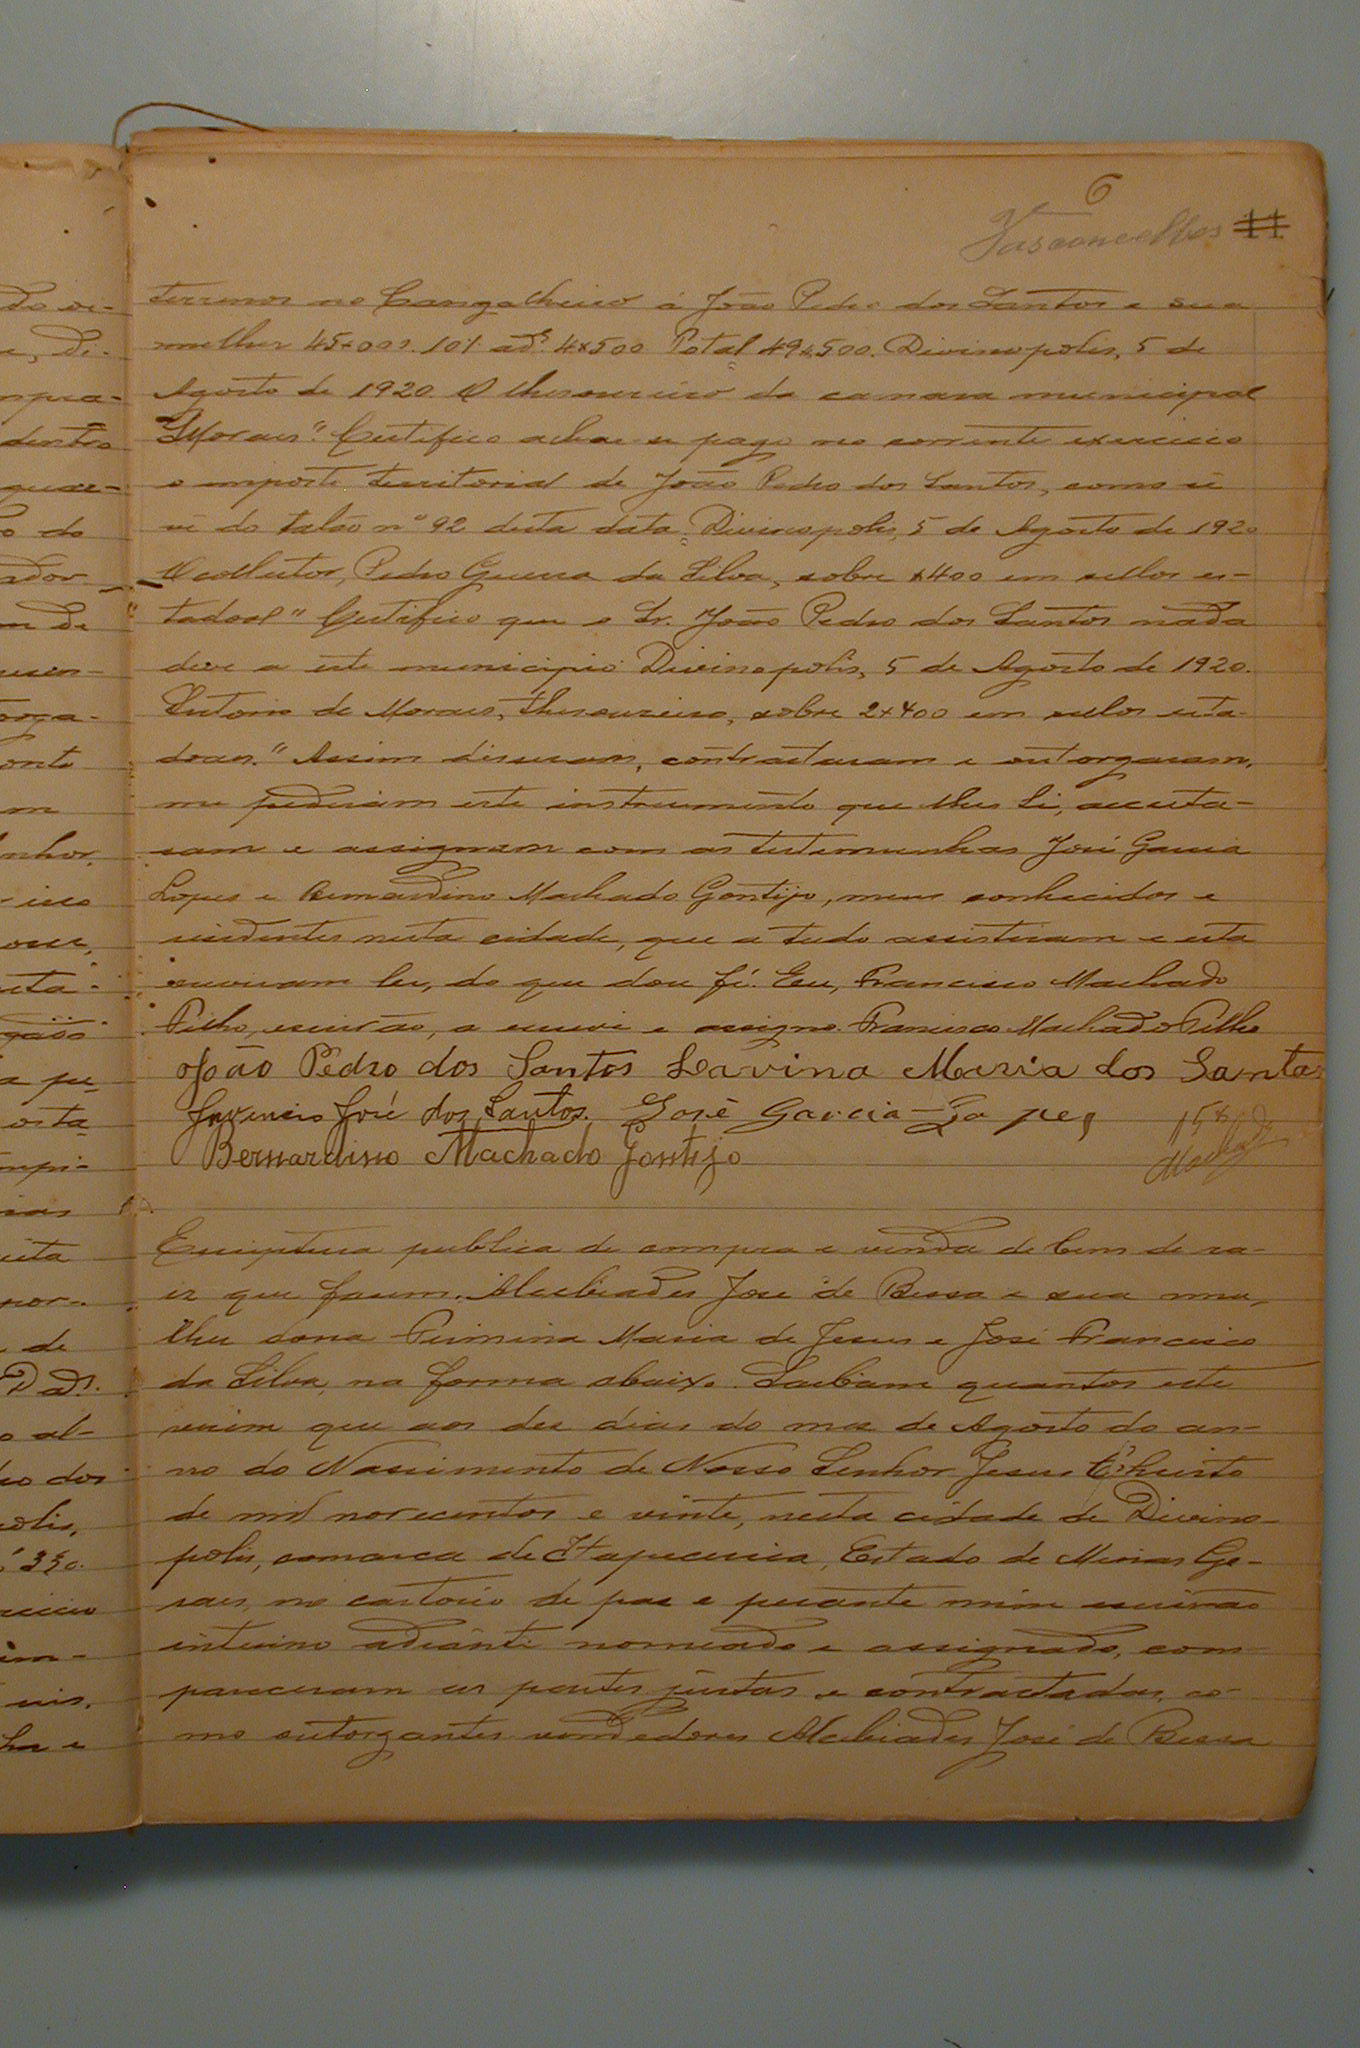 6
Vasconcellos 11
terrenos no Cangalheiro á João Pedro dos Santos e sua
mulher 45$000. 10% ad. 4$500 Total 49$500. Divinopolis, 5 de
Agosto de 1920. O thesoureiro da camara municipal
Moraes." Certifico achar-se pago no corrente exercicio
o imposto territorial de João Pedro dos Santos, como se
vê do talão nº 92 desta data. Divinopolis, 5 de Agosto de 1920
O collector, Pedro Guerra da Silva, sobre $400 em sellos es-
tadoal" Certifico que o Sr. João Pedro dos Santos nada
deve a este municipio. Divinopolis, 5 de Agosto de 1920.
Antonio de Moraes, thesoureiro, sobre 2$400 em sellos esta-
doaes." Assim disseram, contractaram e outorgaram,
me pediram este instrumento que lhes li, acceita-
ram e assignam com as testemunhas José Garcia
Lopes e Bernardino Machado Gontijo, meus conhecidos e
residentes nesta cidade, que a tudo assistiram e esta
ouviram ler, do que dou fé. Eu, Francisco Machado
Filho, escrivão, a escrevi e assigno. Francisco Machado Filho
João Pedro dos Santos Lavina Maria dos Santos
José dos Santos. José Garcia Lopes
Bernardino Machado Gontijo
15$
Machado
Escriptura publica de compra e venda de bens de ra-
iz que fazem Alcebiades José de Bessa e sua mu-
lher dona Firmina Maria de Jesus e José Francisco
da Silva, na forma abaixo. Saibam quantos este
virem que aos dez dias do mez de Agosto do an-
no do Nascimento de Nosso Senhor Jesus Christo
de mil novecentos e vinte, nesta cidade de Divino-
polis, comarca de Itapecerica, Estado de Minas Ge-
raes, no cartorio de paz e perante mim escrivão
interino adiante nomeado e assignado, com
pareceram as partes justas e contractadas, co-
mo outorgantes vendedores Alcebiades José de Bessa